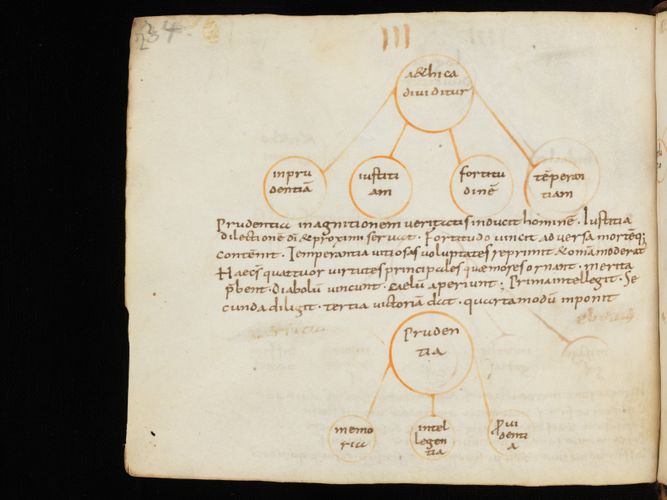 234
III
aethica
dividitur
inpru
dentiā
iustiti
am
fortitu
dinē
tēperan
tiam
Prudentia in agnitionem veritatis inducit hominē · Iustitia
dilectionē dī & proximi servat · Fortitudo vincit adversa mortēq;
contēnit · Temperantia vitiosas voluptates reprimit & omīa moderat
Haec quattuor virtutes principales quae mores ornant · merita
p̄bent · diabolū vincunt · caelū aperiunt : Prima intellegit · Se
cunda diligit · tertia victoriā dat · quarta modū inponit
Pruden
tia
memo
ria
intel
legen
tia
ꝓvi
denti
a